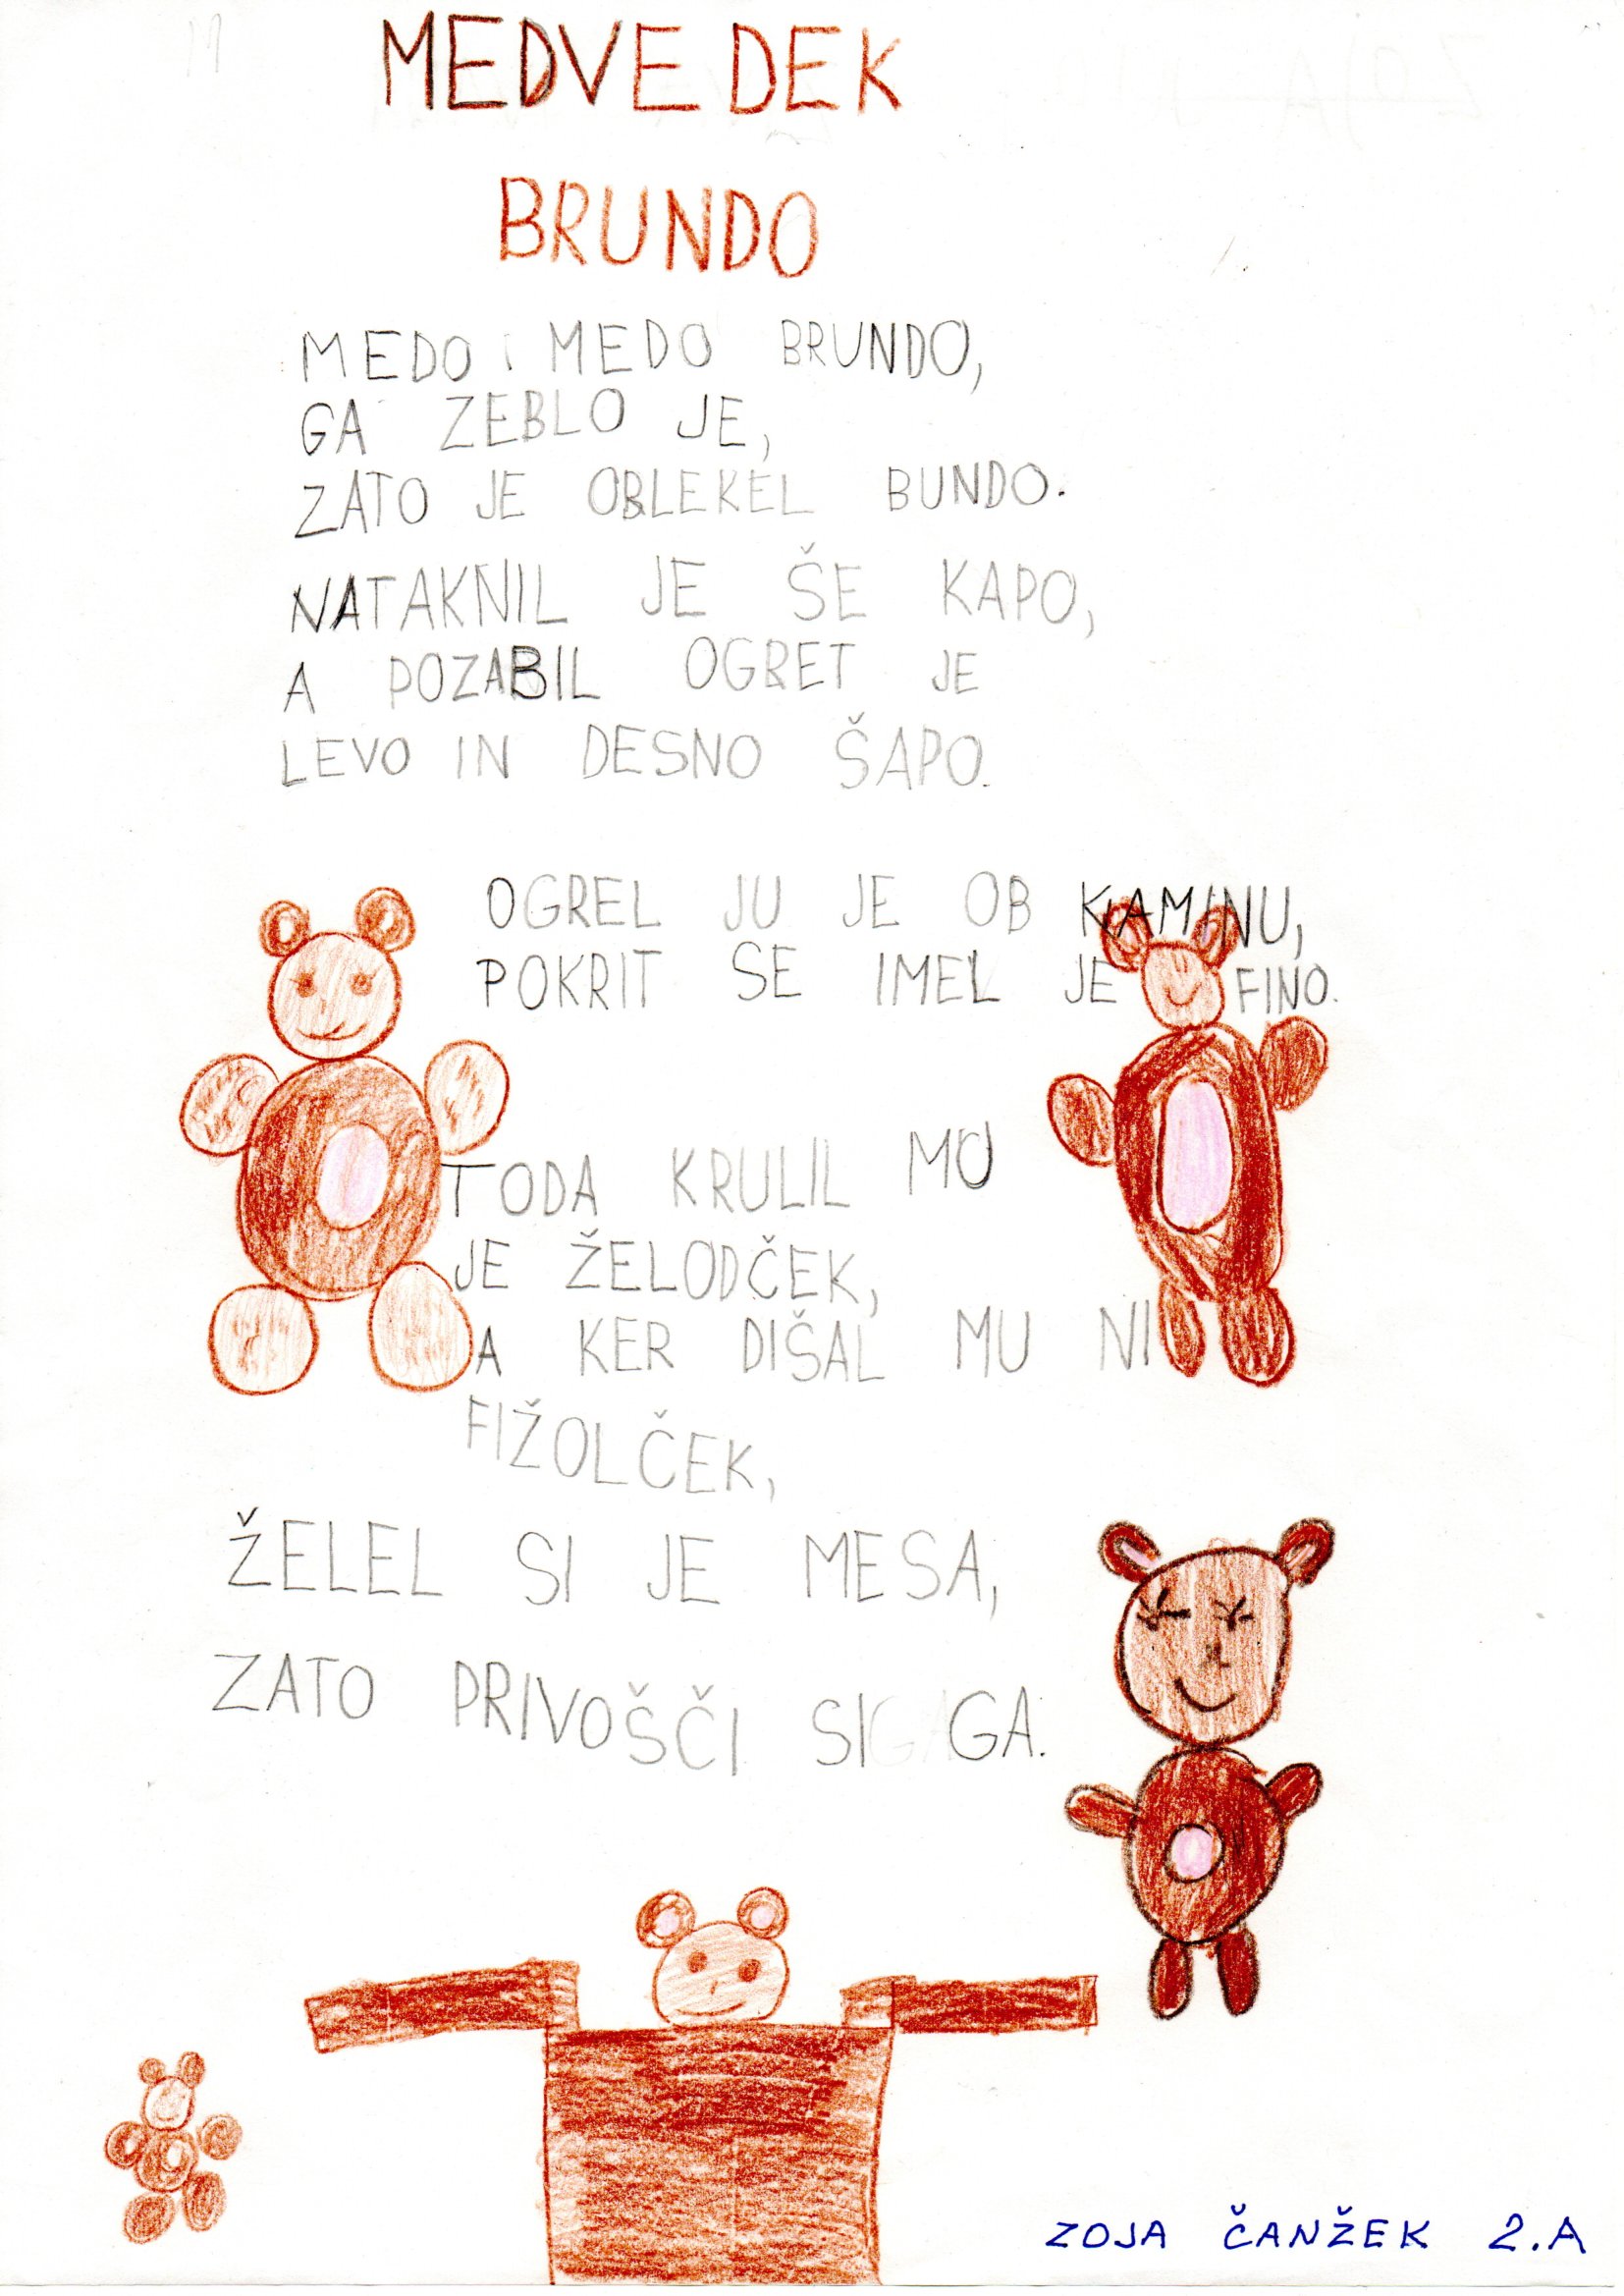 MEDVEDEK
BRUNDO
MEDO MEDO BRUNDO,
GA ZEBLO JE,
ZATO JE OBLEKEL BUNDO.
NATAKNIL JE ŠE KAPO,
A POZABIL OGRET JE
LEVO IN DESNO ŠAPO.
OGREL JU JE OB KAMINU,
POKRIT SE IMEL JE FINO.
TODA KRULIL MU
JE ŽELODČEK,
A KER DIŠAL MU NI
FIŽOLČEK,
ŽELEL SI JE MESA,
ZATO PRIVOŠČI SI GA.
ZOJA ČANŽEK 2.A